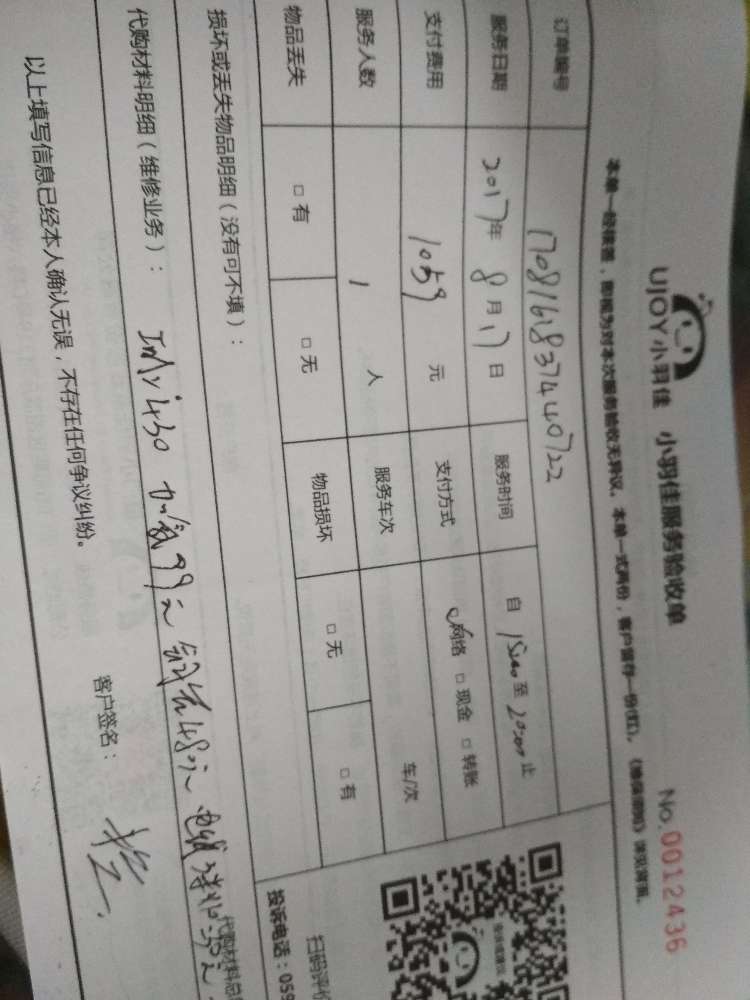 UJOY小羽佳 小羽佳服务验收单 No.0012436
本单一经核签，即视为对本次服务验收无异议。本单一式两份，客户留存一份(红)。
订单编号 1708161837440722
服务日期 2017年 8 月 17 日 服务时间 自 至 止
支付费用 1059 元 支付方式 网络 □ 现金 □ 转账
服务人数 1 人 服务车次 车/次
物品丢失 □ 有 □ 无 物品损坏 □ 无 □ 有
损坏或丢失物品明细（没有可不填）：
代购材料明细（维修业务）： 430 99元 480元
代购材料总
以上填写信息已经本人确认无误，不存在任何争议纠纷。 客户签名：
扫码评价
投诉电话：059